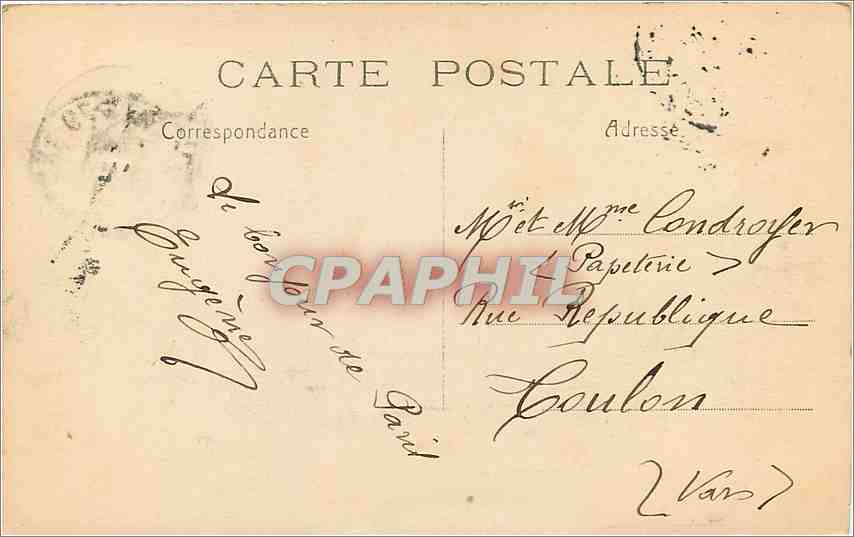 CARTE POSTALE
Correspondance
Adresse
bonjour de Paris
Eugène
Mr et Mme Condroyer
(Papeterie)
Rue République
Toulon
(Var)
CPAPHIL